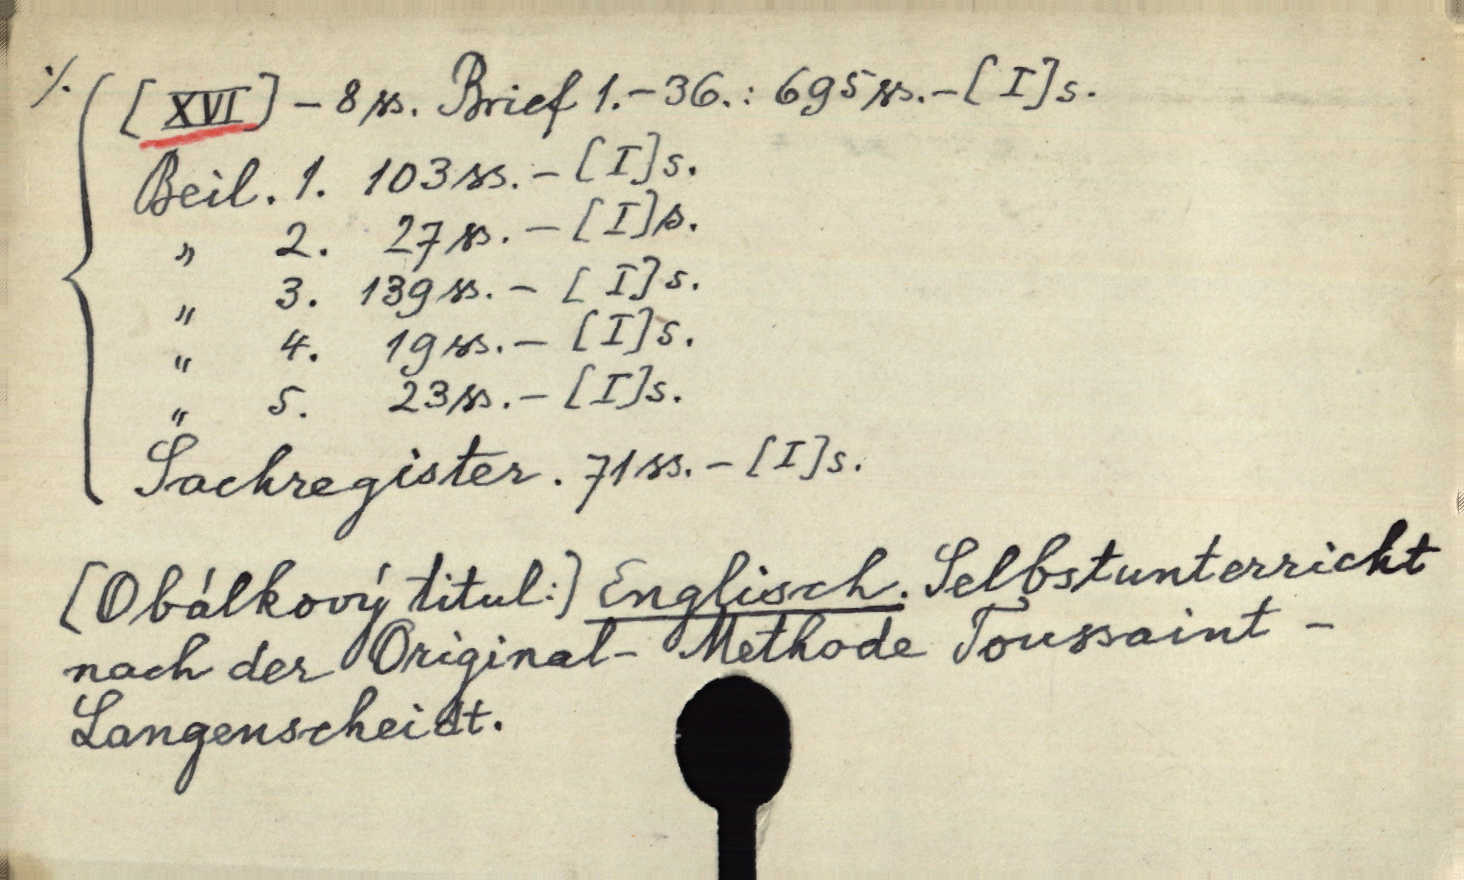 ./. [XVI] – 8 ss. Brief 1.–36.: 695 ss. – [I] s.
Beil. 1. 103 ss. – [I] s.
„ 2. 27 ss. – [I] s.
„ 3. 139 ss. – [I] s.
„ 4. 19 ss. – [I] s.
„ 5. 23 ss. – [I] s.
Sachregister. 71 ss. – [I] s.
[Obálkový titul:] Englisch. Selbstunterricht
nach der Original- Methode Toussaint –
Langenscheidt.